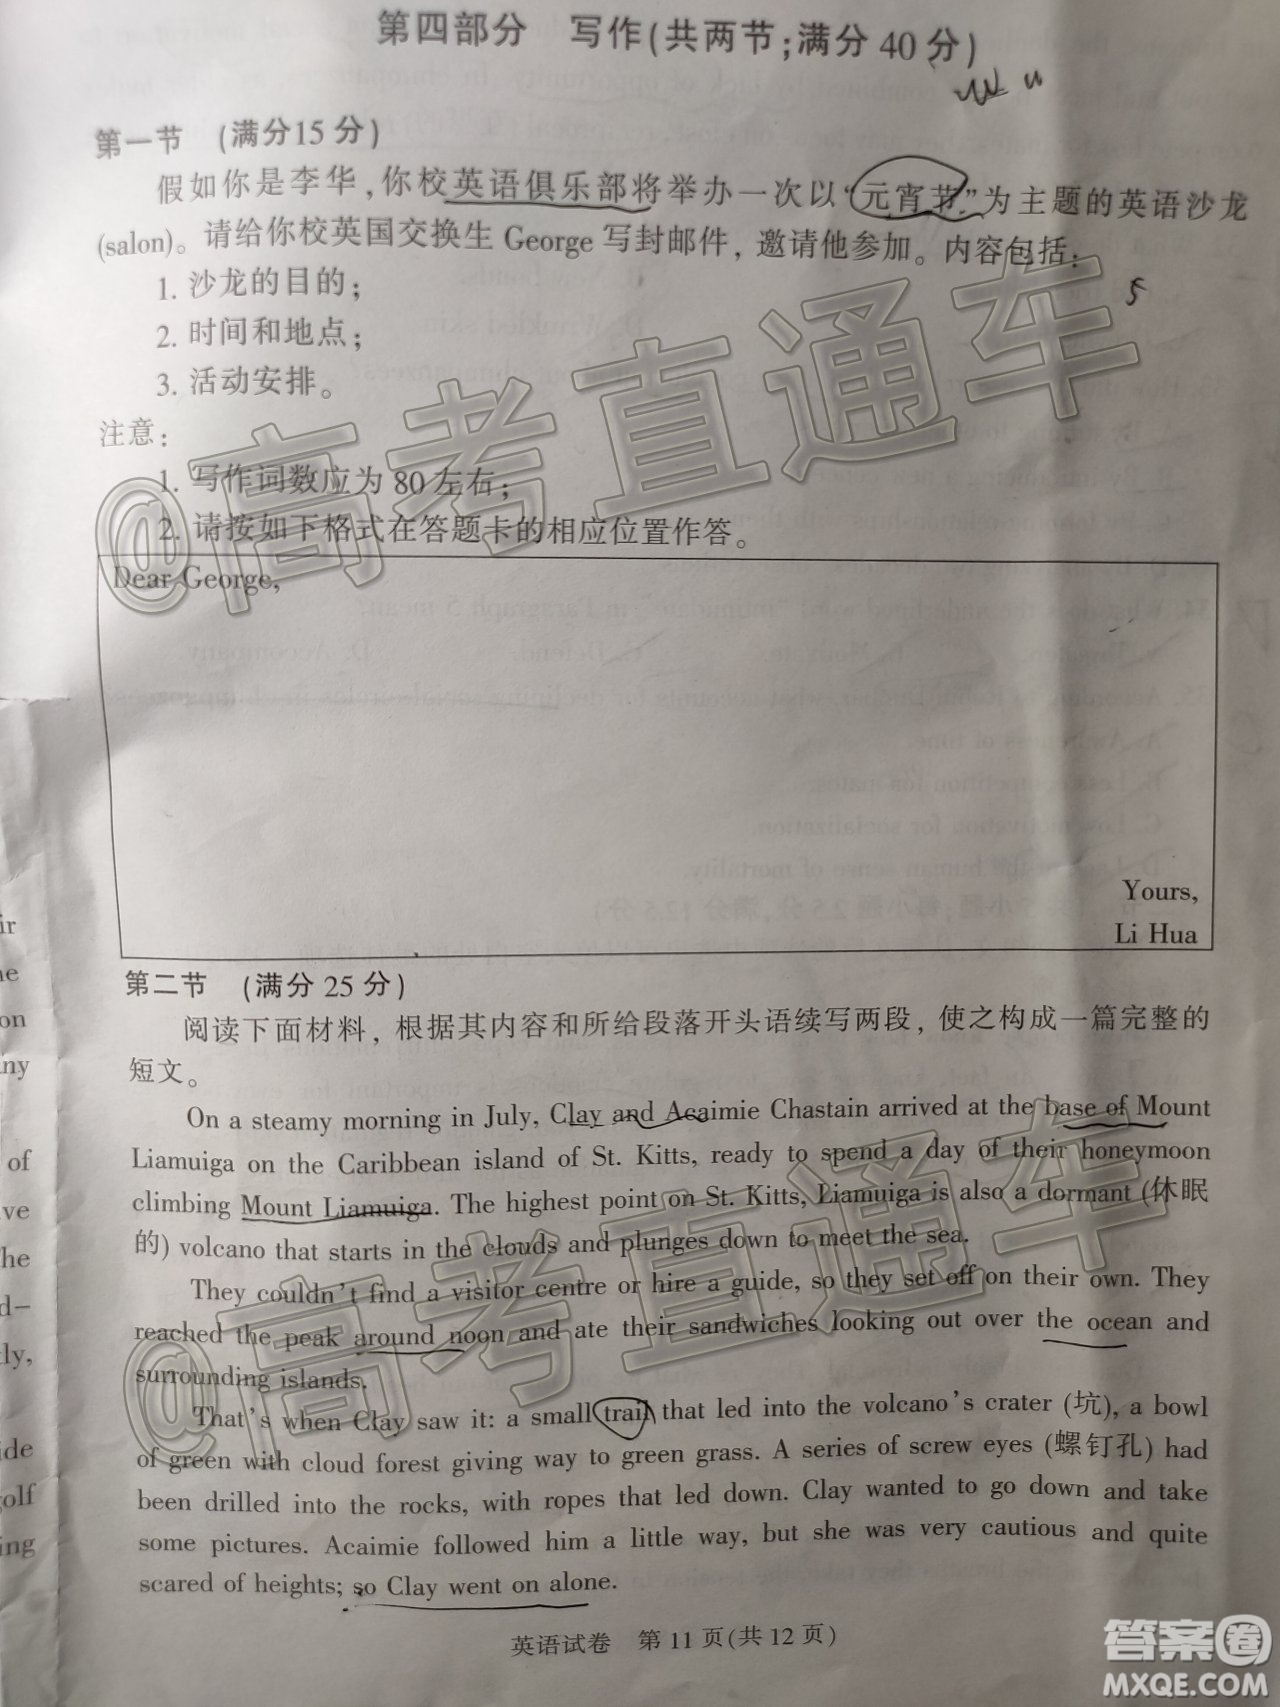 第四部分　写作(共两节;满分 40 分)
第一节　(满分15 分)
假如你是李华,你校英语俱乐部将举办一次以“元宵节”为主题的英语沙龙
(salon)。请给你校英国交换生 George 写封邮件，邀请他参加。内容包括:
1. 沙龙的目的;
2. 时间和地点;
3. 活动安排。
注意:
1. 写作词数应为 80 左右;
2. 请按如下格式在答题卡的相应位置作答。
Dear George,
Yours,
Li Hua
第二节　(满分 25 分)
阅读下面材料，根据其内容和所给段落开头语续写两段，使之构成一篇完整的
短文。
On a steamy morning in July, Clay and Acaimie Chastain arrived at the base of Mount
Liamuiga on the Caribbean island of St. Kitts, ready to spend a day of their honeymoon
climbing Mount Liamuiga. The highest point on St. Kitts, Liamuiga is also a dormant (休眠
的) volcano that starts in the clouds and plunges down to meet the sea.
They couldn't find a visitor centre or hire a guide, so they set off on their own. They
reached the peak around noon and ate their sandwiches looking out over the ocean and
surrounding islands.
That's when Clay saw it: a small trail that led into the volcano's crater (坑), a bowl
of green with cloud forest giving way to green grass. A series of screw eyes (螺钉孔) had
been drilled into the rocks, with ropes that led down. Clay wanted to go down and take
some pictures. Acaimie followed him a little way, but she was very cautious and quite
scared of heights; so Clay went on alone.
英语试卷　第 11 页(共 12 页)
@高考直通车
@高考直通车
答案圈
MXQE.COM